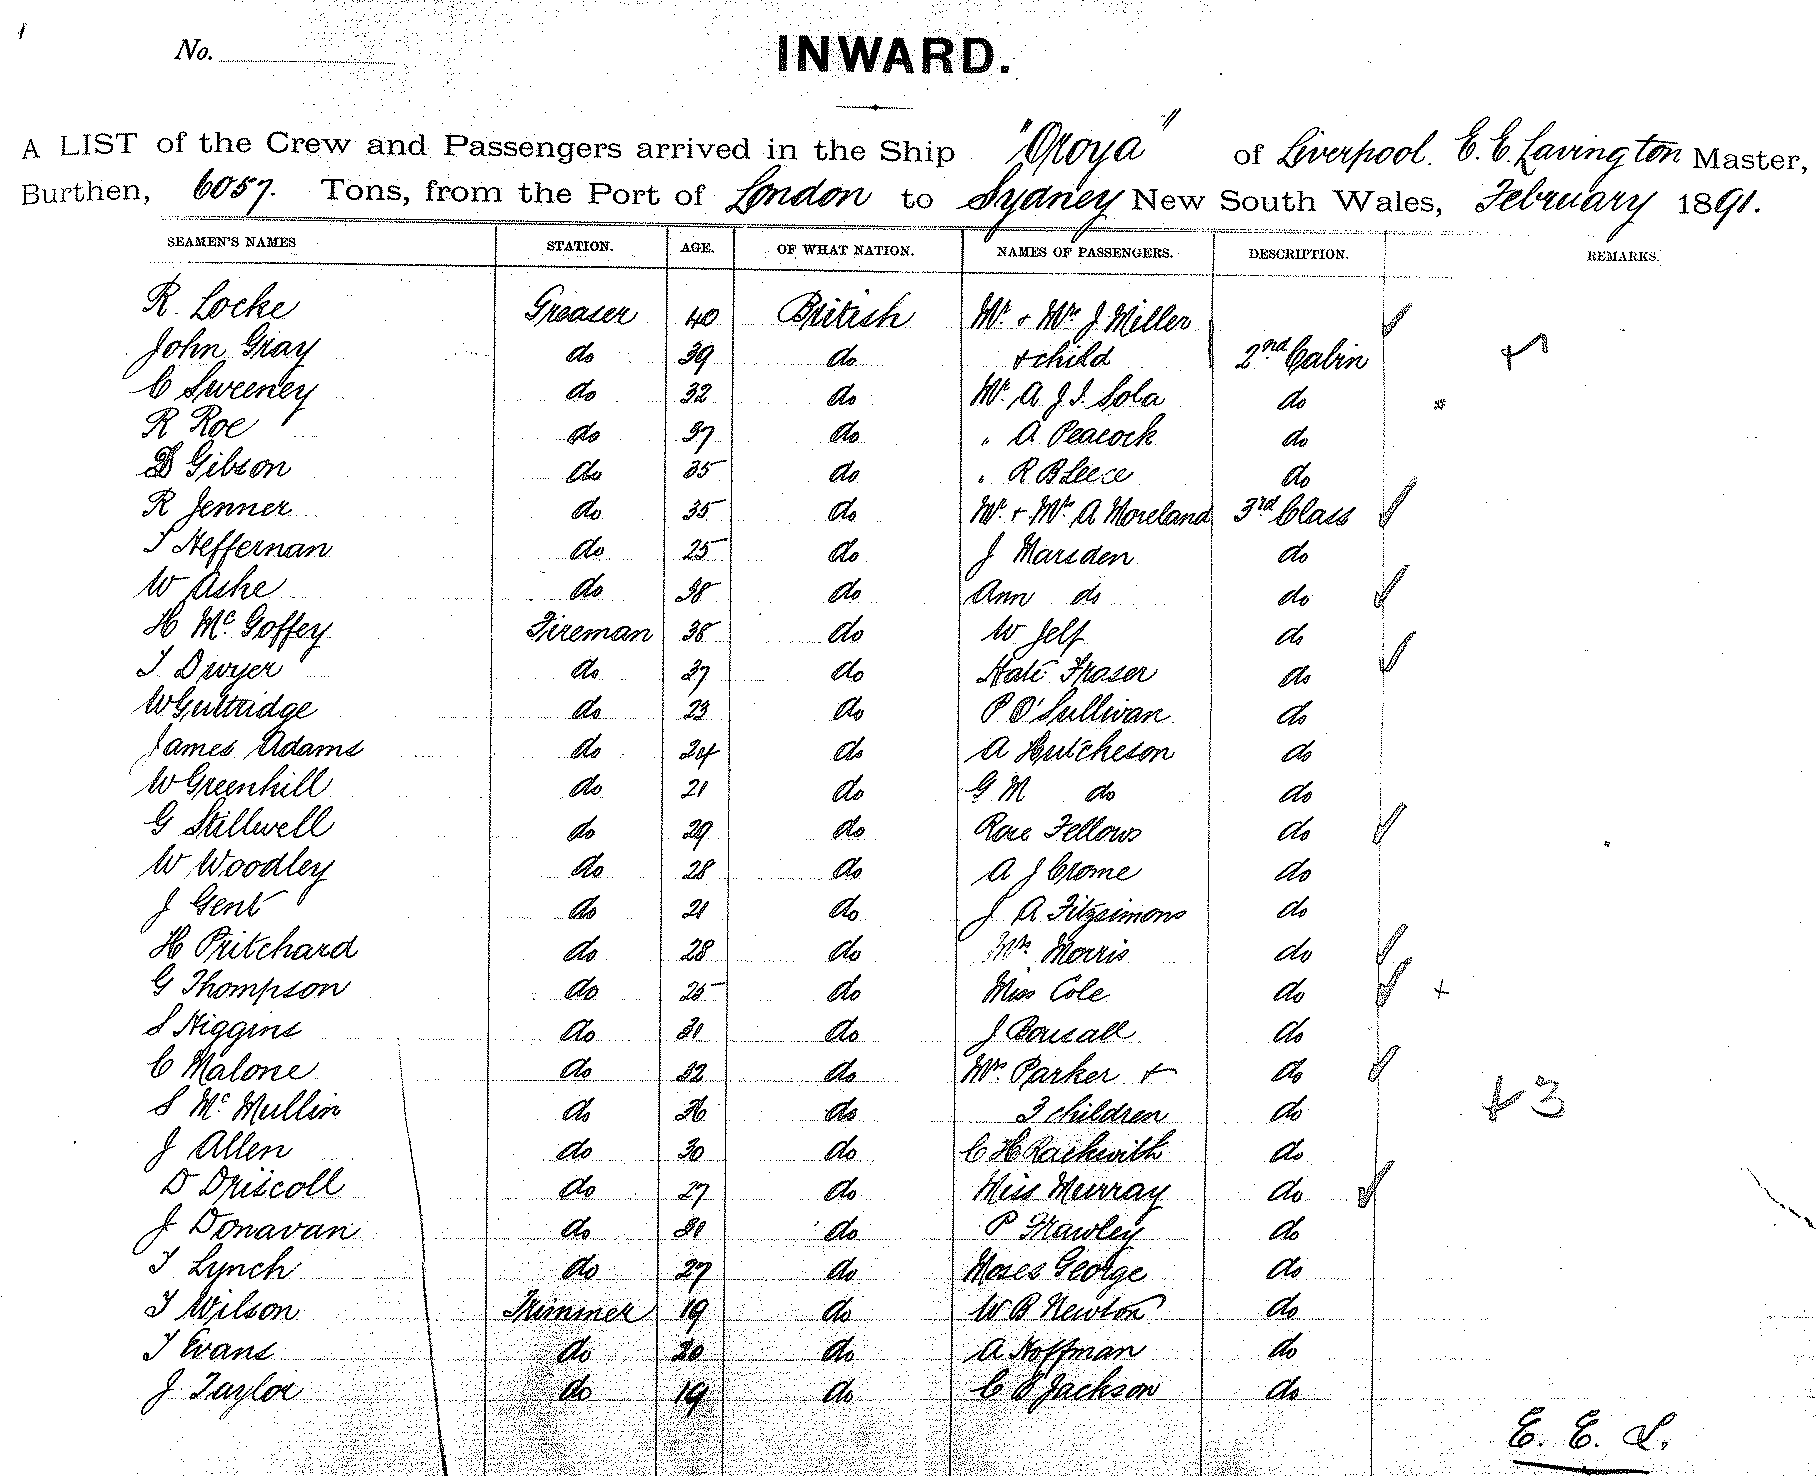 No.
INWARD.
A LIST of the Crew and Passengers arrived in the Ship "Oroya" of Liverpool. E. E. Lavington Master,
Burthen, 6057. Tons, from the Port of London to Sydney New South Wales, February 1891.
SEAMEN'S NAMES STATION. AGE. OF WHAT NATION. NAMES OF PASSENGERS. DESCRIPTION. REMARKS.
R. Locke Greaser 40 British Mr. + Mrs J Miller
John Gray do 39 do + child 2nd Cabin
C Sweeney do 32 do Mr. A J S. Sola do
R Roe do 37 do " A Peacock do
D Gibson do 35 do " R B Leece do
R Jenner do 35 do Mr. + Mrs. A Moreland 3rd Class
T Heffernan do 25 do J Marsden do
W Ashe do 38 do Ann do do
H Mc. Goffey Fireman 38 do W Jelf do
T Dwyer do 27 do Kate Fraser do
W Guttridge do 23 do P O'Sullivan do
James Adams do 24 do A Hutcheson do
W Greenhill do 21 do G M do do
G Stillwell do 29 do Rose Fellows do
W Woodley do 28 do A J Crome do
J Gent do 21 do J A Fitzsimons do
H Pritchard do 28 do Mrs. Morris do
G Thompson do 25 do Miss Cole do +
S Higgins do 31 do J Bousall do
C Malone do 32 do Mrs. Parker + do
S Mc. Mullin do 26 do 3 children do + 3
J Allen do 30 do C H Rackwith do
D Driscoll do 27 do Miss Murray do
J Donavan do 31 do P Frawley do
T Lynch do 27 do Moses George do
T Wilson Trimmer 19 do W B Newton do
T Evans do 20 do A Hoffman do
J Taylor do 19 do C B Jackson do
E. E. L.